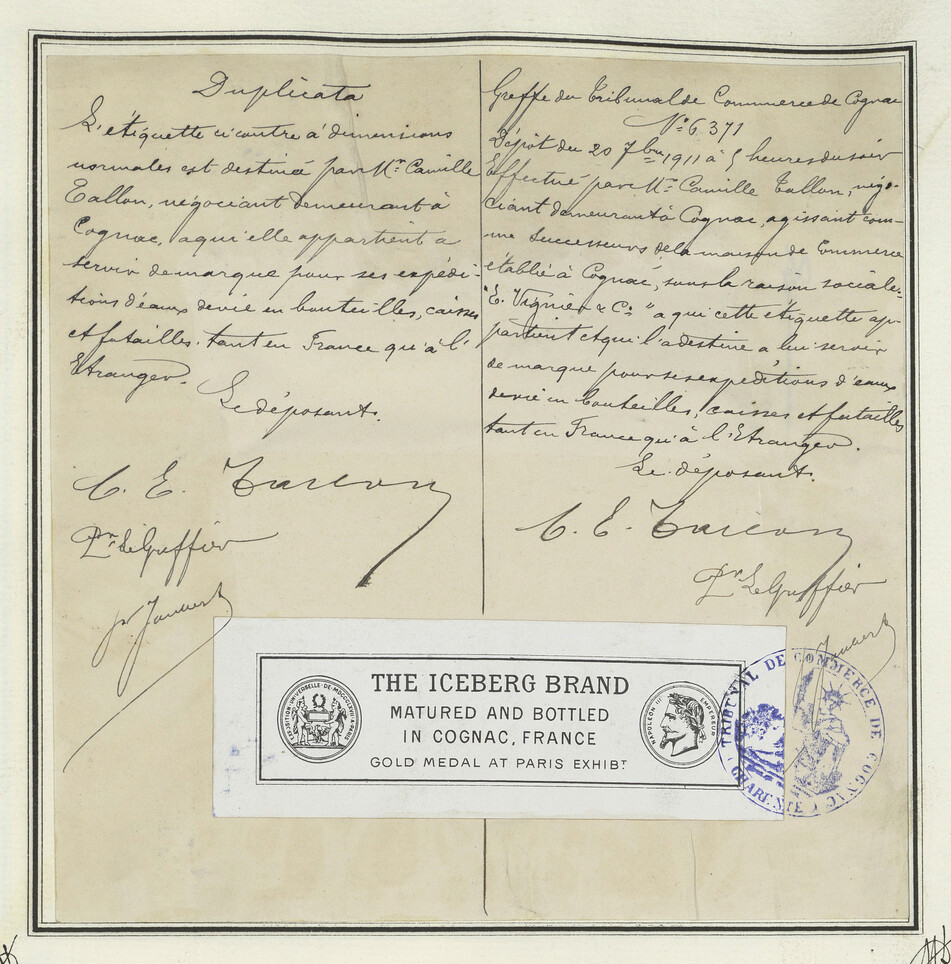 Duplicata
L'étiquette ci contre à dimensions
normales est destinée par Mr. Camille
Tallon, négociant demeurant à
Cognac, a qui elle appartient a
servir de marque pour ses expédi-
tions d'eaux de vie en bouteilles, caisses
et futailles. tant en France qu'à l'
Etranger.
Le déposant.
C. E. Tallon
Pr. Le Greffier
Greffe du Tribunal de Commerce de Cognac
No. 6.371
Dépôt du 20 7bre 1911 à 5 heures du soir
Effectué par Mr. Camille Tallon, négo-
ciant demeurant à Cognac, agissant com-
me Successeurs de la maison de Commerce
établie à Cognac, sous la raison sociale:-
"E. Vignier & Co. " a qui cette étiquette ap-
partient et qui l'a destine a lui servir
de marque pour ses expéditions d'eaux
de vie en bouteilles, caisses et futailles
tant en France qu'à l'Etranger.
Le déposant.
C. E. Tallon
Pr Le Greffier
THE ICEBERG BRAND
MATURED AND BOTTLED
IN COGNAC, FRANCE
GOLD MEDAL AT PARIS EXHIBT
EXPOSITION UNIVERSELLE DE MDCCCLXXVIII A PARIS
NAPOLEON III EMPEREUR
TRIBUNAL DE COMMERCE DE COGNAC
CHARENTE